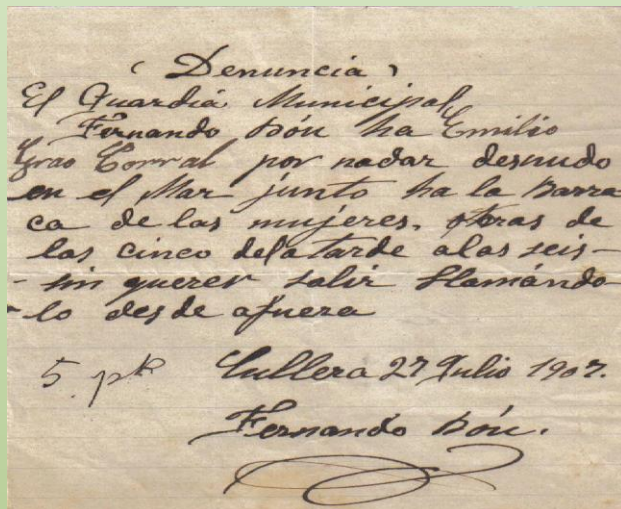 (Denuncia)
El Guardia Municipal
Fernando Bóu ha Emilio
Grao Corral por nadar desnudo
en el Mar junto ha la Barra
ca de las mujeres, oras de
las cinco dela tarde alas seis-
- sin querer salir llamándo
- lo desde afuera
5 pts Cullera 27 Julio 1907.
Fernando Bóu.